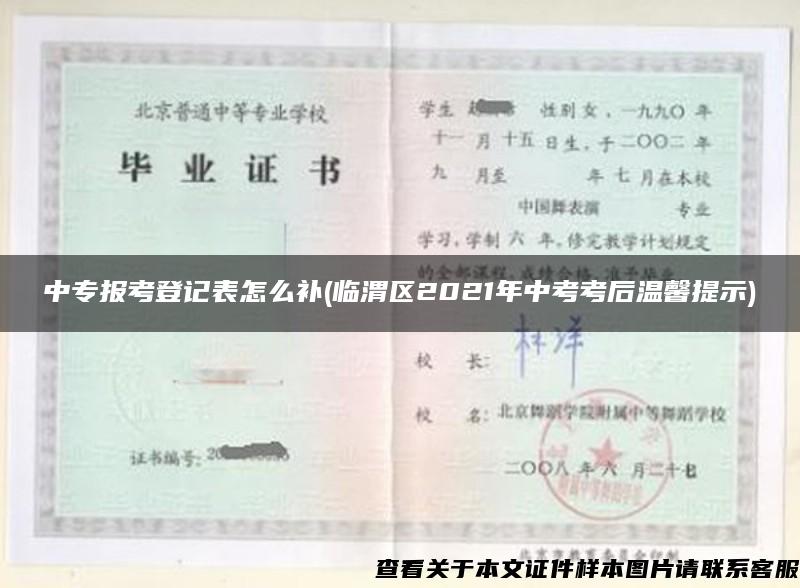 北京普通中等专业学校
毕业证书
证书编号:
学生 性别 女,一九九〇 年
十一 月 十五 日生,于 二〇〇二 年
九 月至 年 七 月在本校
中国舞表演 专业
学习,学制 六 年,修完教学计划规定
的全部课程,成绩合格,准予毕业
中专报考登记表怎么补(临渭区2021年中考考后温馨提示)
校 长:
校 名:北京舞蹈学院附属中等舞蹈学校
二〇〇八 年 六 月二十七
北京市教育委员会印制
查看关于本文证件样本图片请联系客服